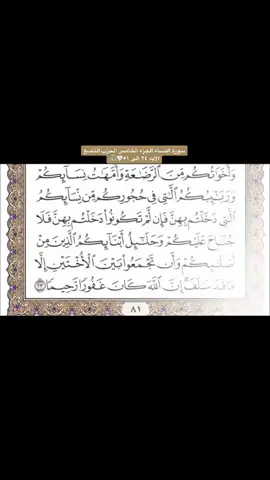 سورة النساء الجزء الخامس الحزب التاسع
وَأَخَوَٰتُكُم مِّنَ ٱلرَّضَٰعَةِ وَأُمَّهَٰتُ نِسَآئِكُمْ
وَرَبَٰٓئِبُكُمُ ٱلَّٰتِي فِي حُجُورِكُم مِّن نِّسَآئِكُمُ
ٱلَّٰتِي دَخَلْتُم بِهِنَّ فَإِن لَّمْ تَكُونُوا۟ دَخَلْتُم بِهِنَّ فَلَا
جُنَاحَ عَلَيْكُمْ وَحَلَٰٓئِلُ أَبْنَآئِكُمُ ٱلَّذِينَ مِنْ
أَصْلَٰبِكُمْ وَأَن تَجْمَعُوا۟ بَيْنَ ٱلْأُخْتَيْنِ إِلَّا
مَا قَدْ سَلَفَ إِنَّ ٱللَّهَ كَانَ غَفُورًا رَّحِيمًا ٢٣
٨١